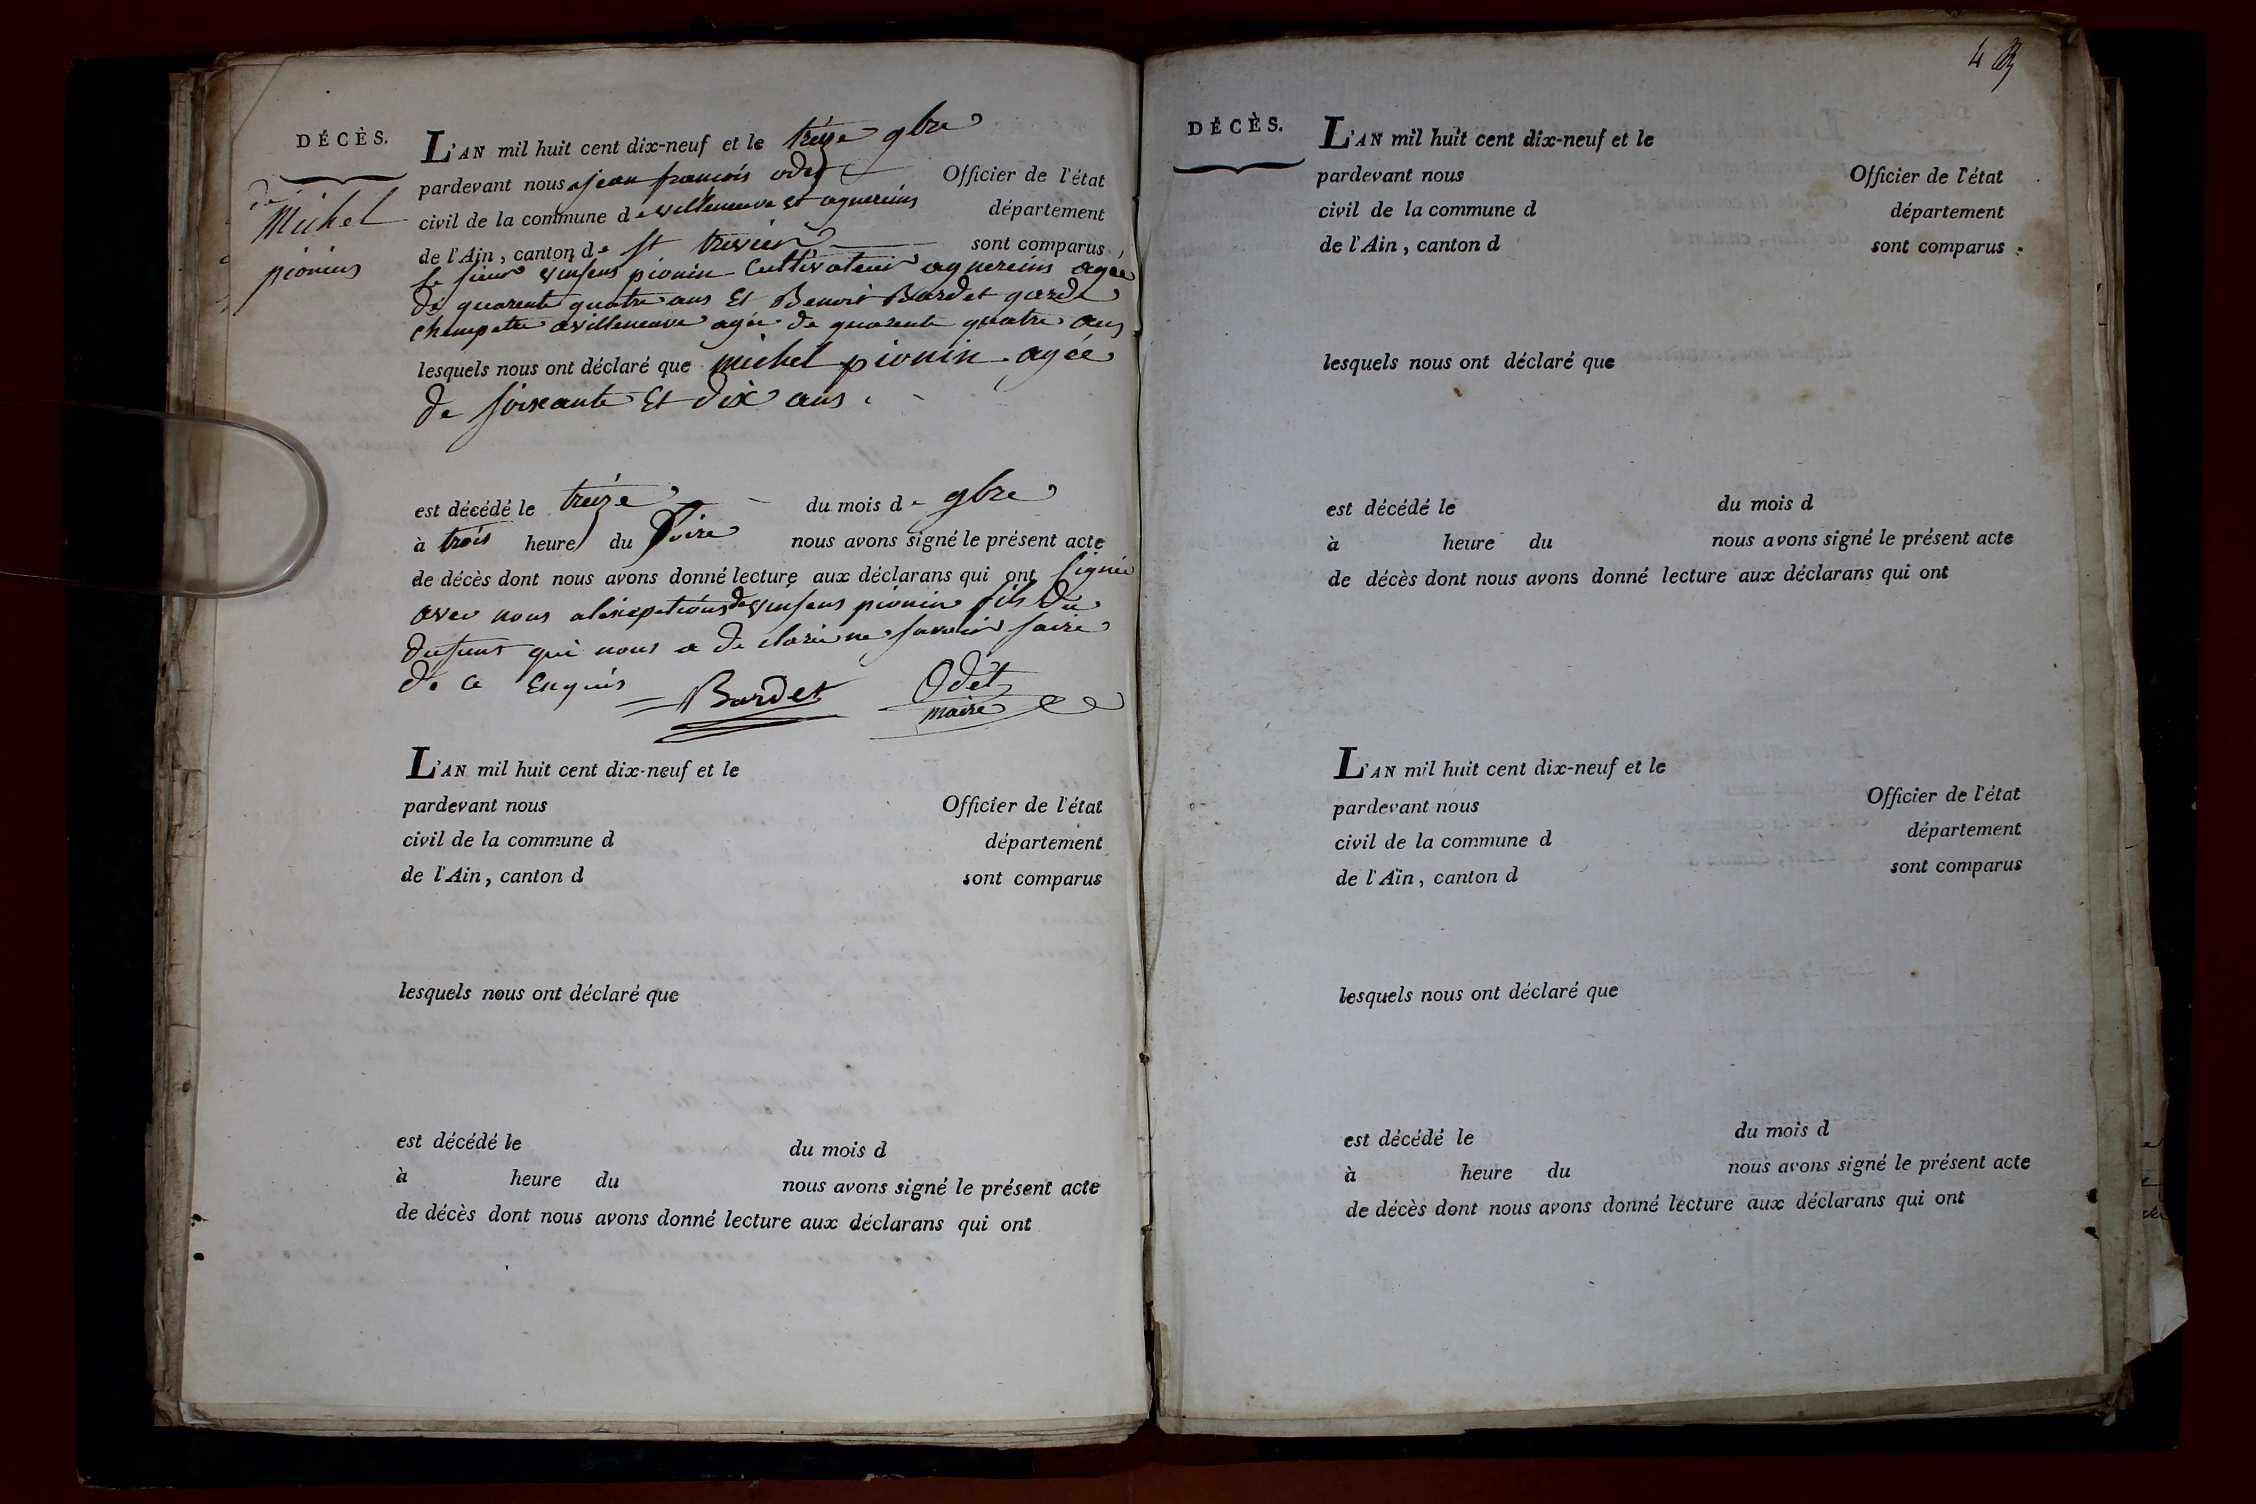 DÉCÈS.
de
Michel
pionins
L'AN mil huit cent dix-neuf et le treize 9bre
pardevant nous jean francois odet Officier de l'état
civil de la commune de villeneuve et agnereins département
de l'Ain, canton de st trivier sont comparus
le sieur vinsens pionin Cultivateur agnereins agée
de quarente quatre ans Et Benoit Bardet garde
champetre avilleneuve agée de quarente quatre ans
lesquels nous ont déclaré que michel pionin agée
de soixante Et dix ans
est décédé le treize du mois de 9bre
à trois heure du soire nous avons signé le présent acte
de décès dont nous avons donné lecture aux déclarans qui ont signée
avec nous alexceptions de vinsens pionin fils du
dufunt qui nous a de clarée ne savoir faire
de ce Enquis
Bardet Odet
maire
L'AN mil huit cent dix-neuf et le
pardevant nous Officier de l'état
civil de la commune d département
de l'Ain, canton d sont comparus
lesquels nous ont déclaré que
est décédé le du mois d
à heure du nous avons signé le présent acte
de décès dont nous avons donné lecture aux déclarans qui ont
4
DÉCÈS.
L'AN mil huit cent dix-neuf et le
pardevant nous Officier de l'état
civil de la commune d département
de l'Ain, canton d sont comparus
lesquels nous ont déclaré que
est décédé le du mois d
à heure du nous avons signé le présent acte
de décès dont nous avons donné lecture aux déclarans qui ont
L'AN mil huit cent dix-neuf et le
pardevant nous Officier de l'état
civil de la commune d département
de l'Ain, canton d sont comparus
lesquels nous ont déclaré que
est décédé le du mois d
à heure du nous avons signé le présent acte
de décès dont nous avons donné lecture aux déclarans qui ont